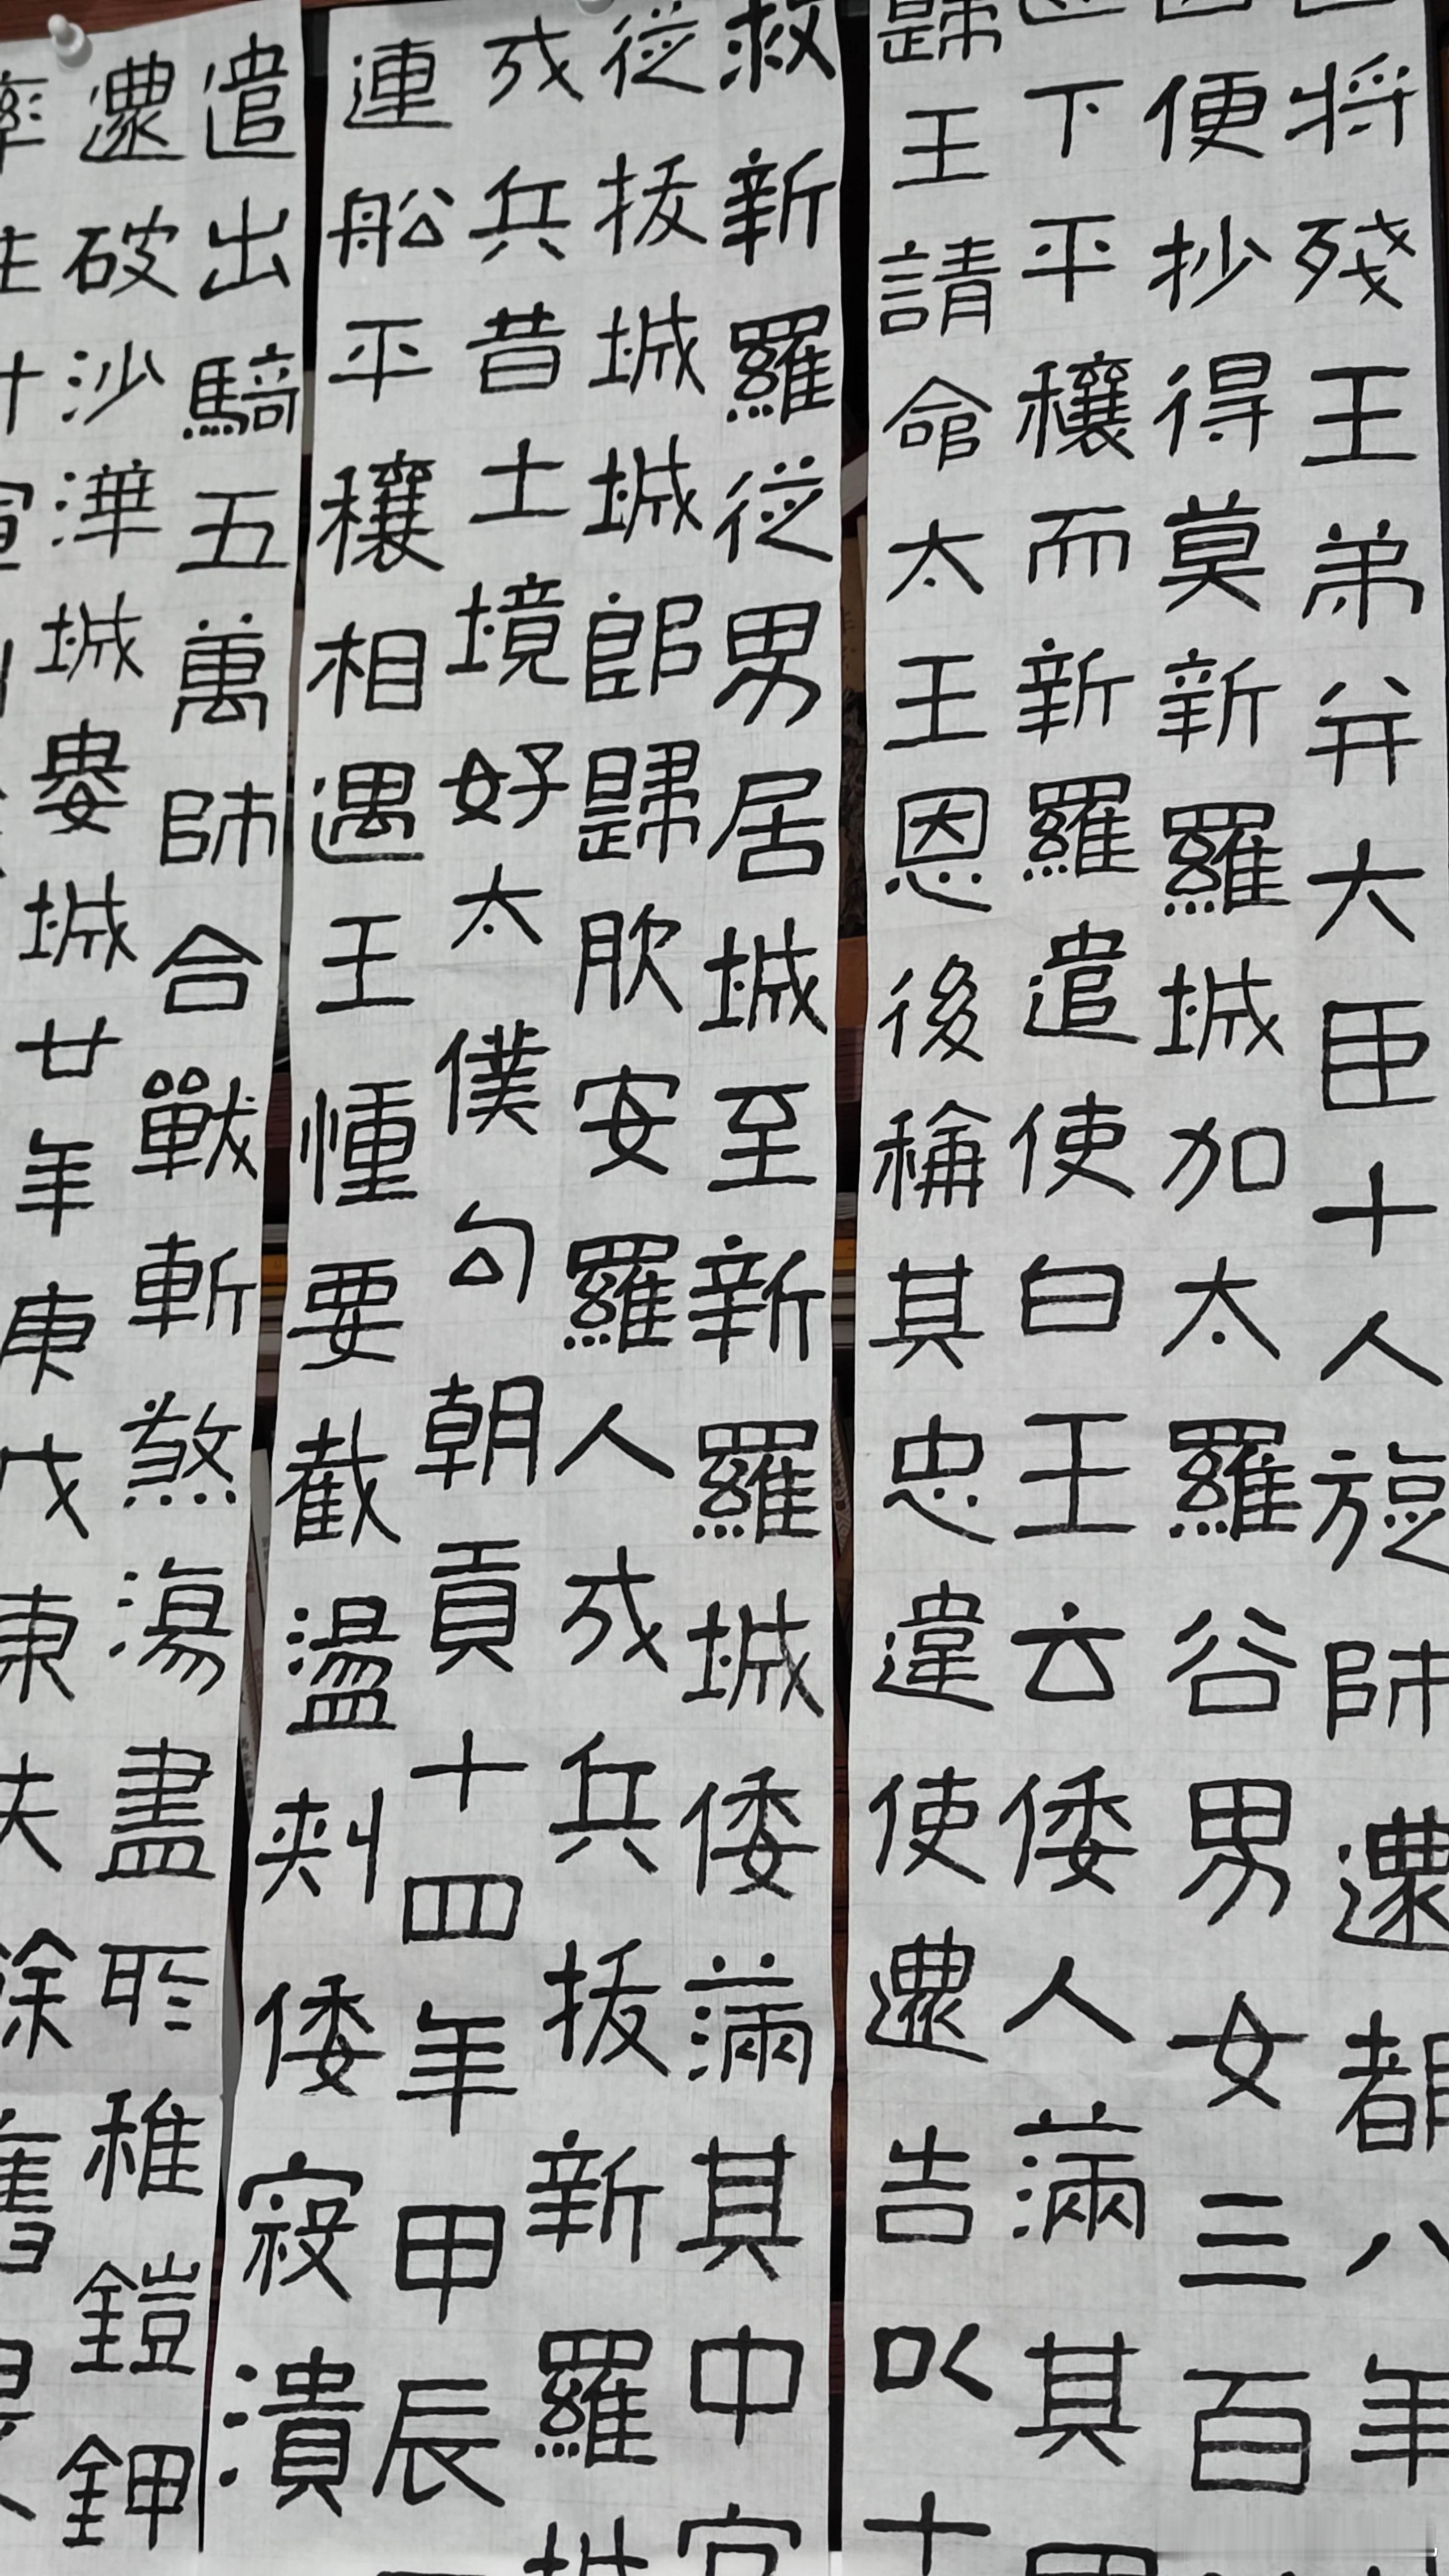 将殘王弟并大臣十人旋師還都八年
便抄得莫新羅城加太羅谷男女三百
下平穰而新羅遣使白王云倭人滿其
歸王請命太王恩後稱其忠違使還告以十
救新羅從男居城至新羅城倭滿其中官
從拔城城即歸服安羅人戍兵拔新羅城
戍兵昔土境好太僕勾朝貢十四年甲辰
連船平穰相遇王幢要截盪刺倭寇潰
遣出騎五萬師合戰斬煞湯盡所稚鎧鉀
還破沙溝城婁城廿年庚戌東夫餘舊
率往